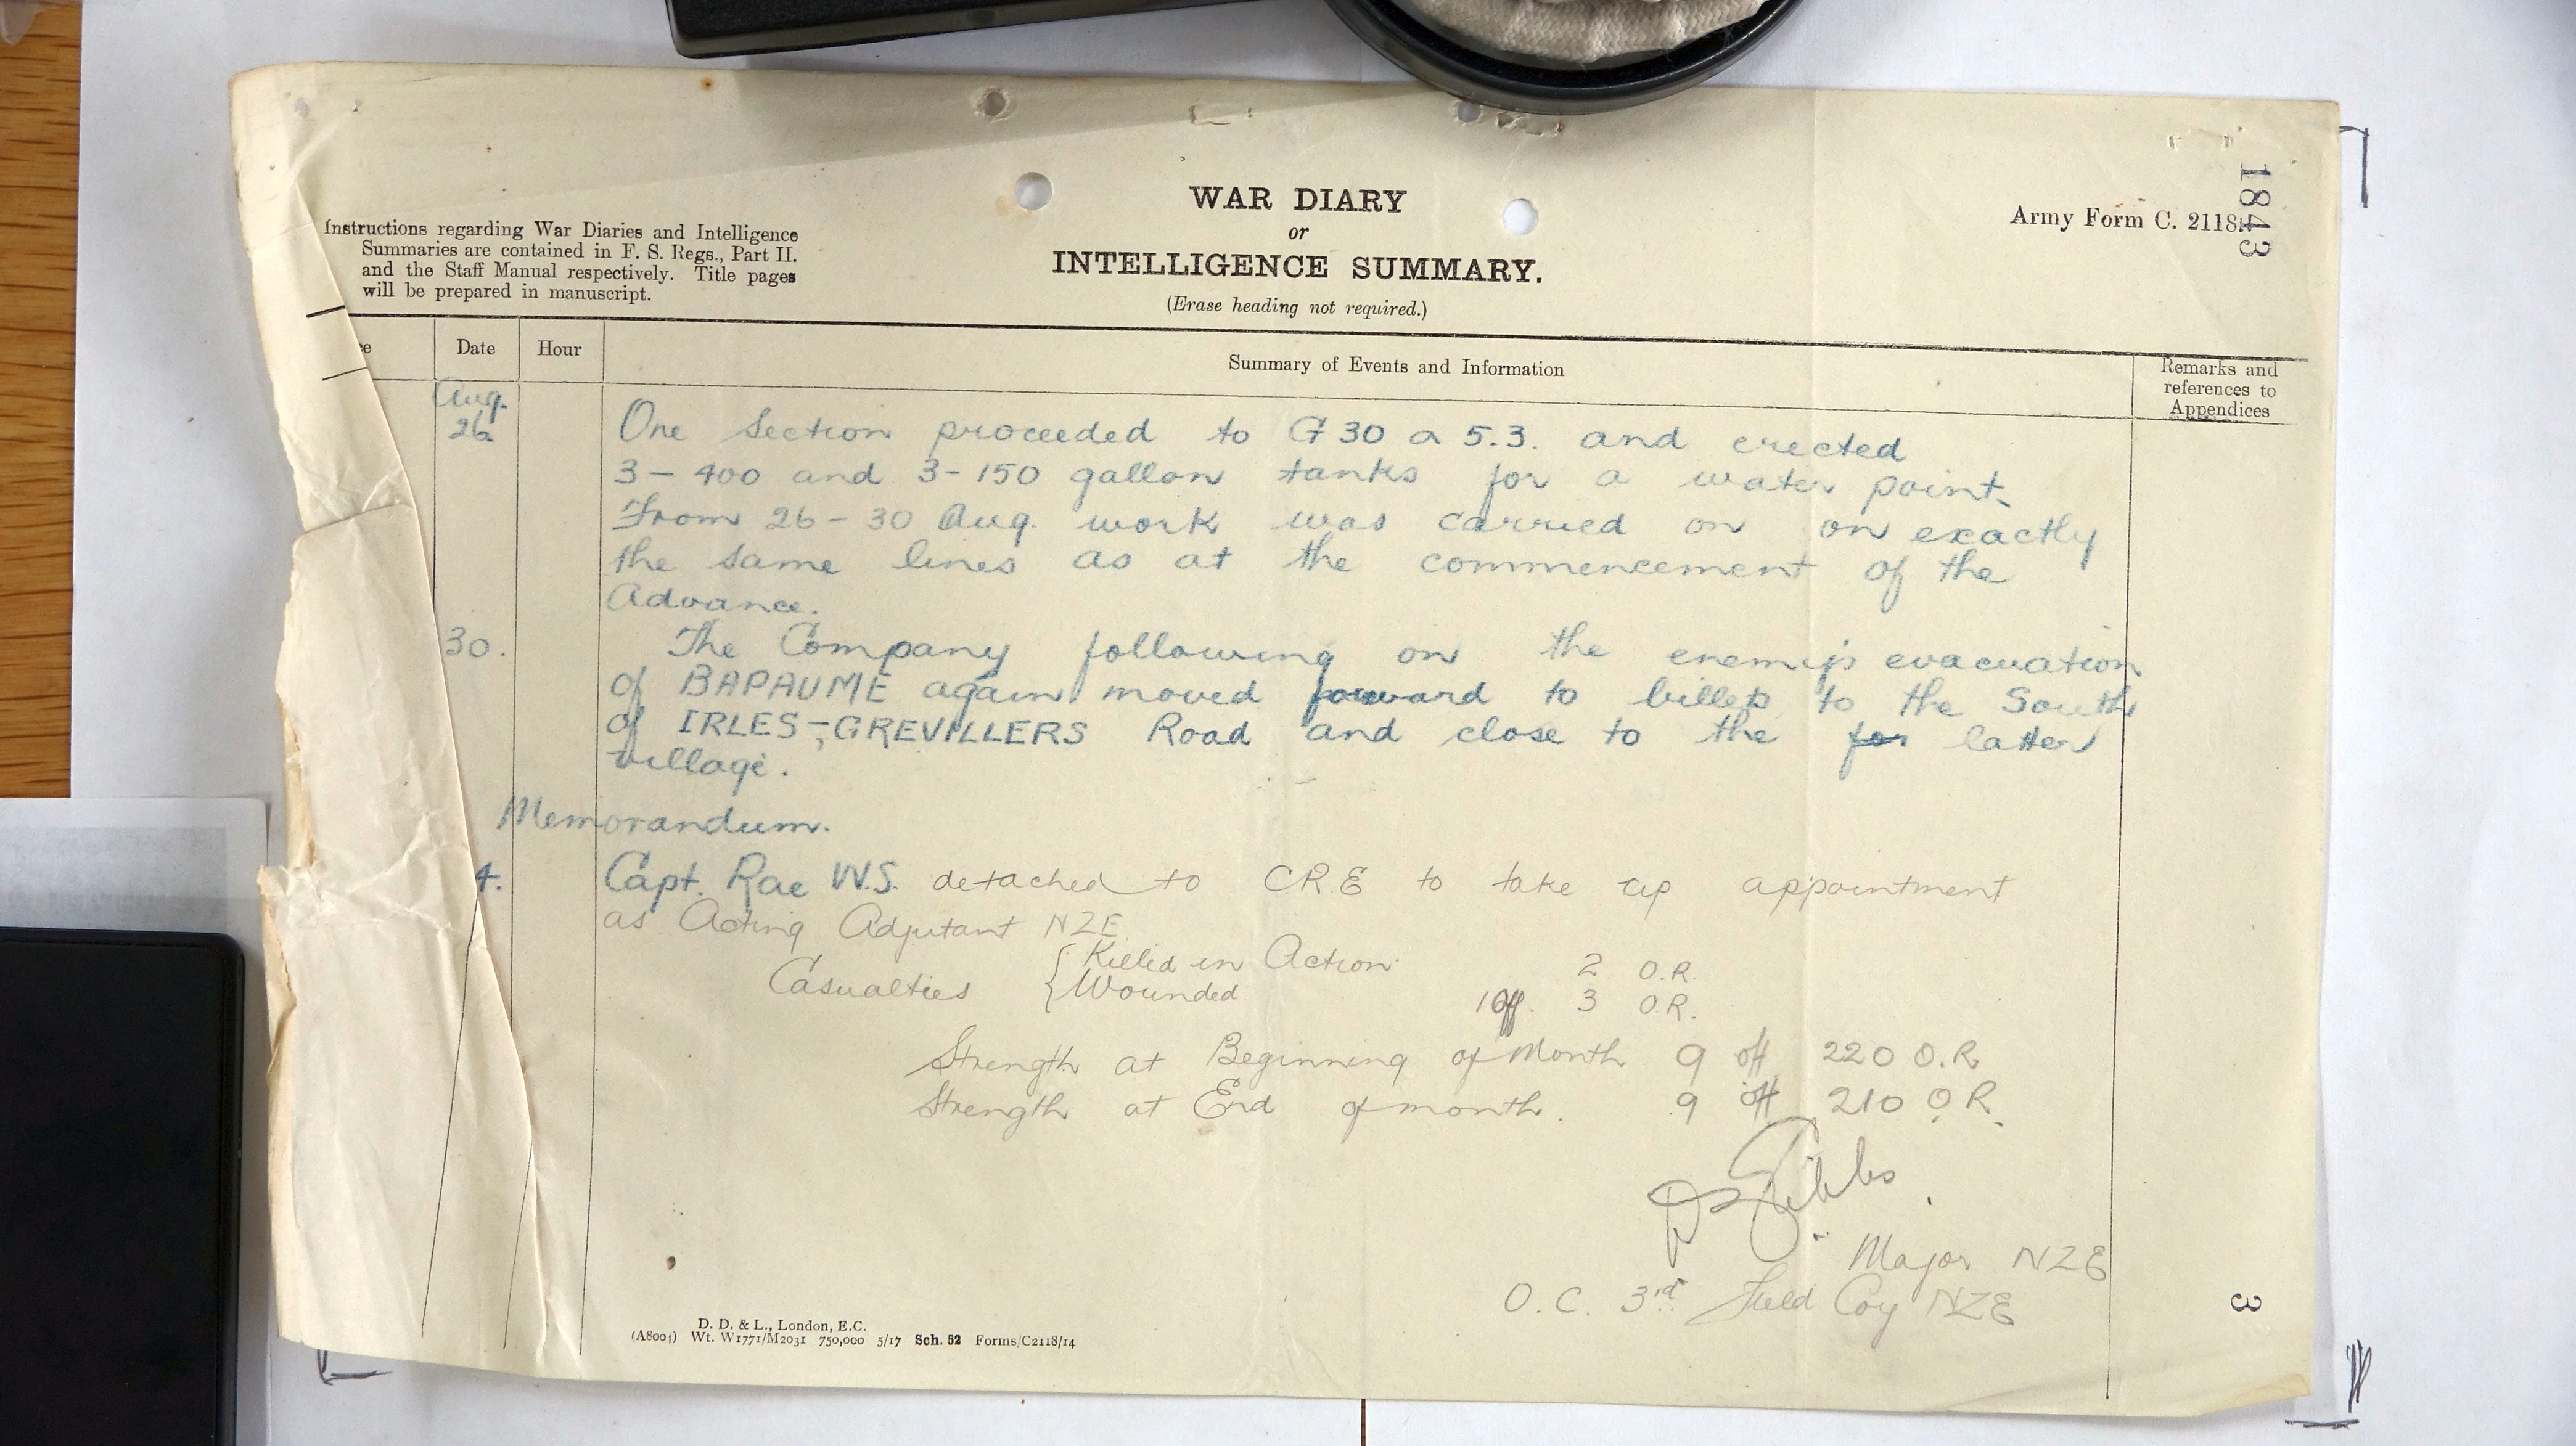 1843
Army Form C. 2118.
WAR DIARY
or
INTELLIGENCE SUMMARY.
(Erase heading not required.)
Instructions regarding War Diaries and Intelligence
Summaries are contained in F. S. Regs., Part II.
and the Staff Manual respectively. Title pages
will be prepared in manuscript.
e Date Hour Summary of Events and Information Remarks and
references to
Appendices
Aug.
26 One Section proceeded to G 30 a 5.3. and erected
3 - 400 and 3 - 150 gallon tanks for a water point.
From 26 - 30 Aug. work was carried on on exactly
the same lines as at the commencement of the
Advance.
30. The Company following on the enemy's evacuation
of BAPAUME again moved forward to billets to the South
of IRLES-, GREVILLERS Road and close to the for latter
village.
Memorandum.
4. Capt. Rae W.S. detached to C.R.E to take up appointment
as Acting Adjutant NZE
Casualties { Killed in Action 2 O.R.
{ Wounded 1 Off. 3 O.R.
Strength at Beginning of Month 9 off 220 O.R
Strength at End of month. 9 off 210 O.R.
Gibbs
Major NZE
O.C. 3rd Field Coy NZE
3
D. D. & L., London, E.C.
(A8001) Wt. W1771/M2031 750,000 5/17 Sch. 52 Forms/C2118/14